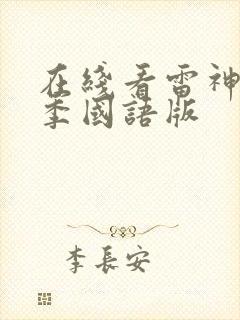 在綫看雷神
季國語版
李長安